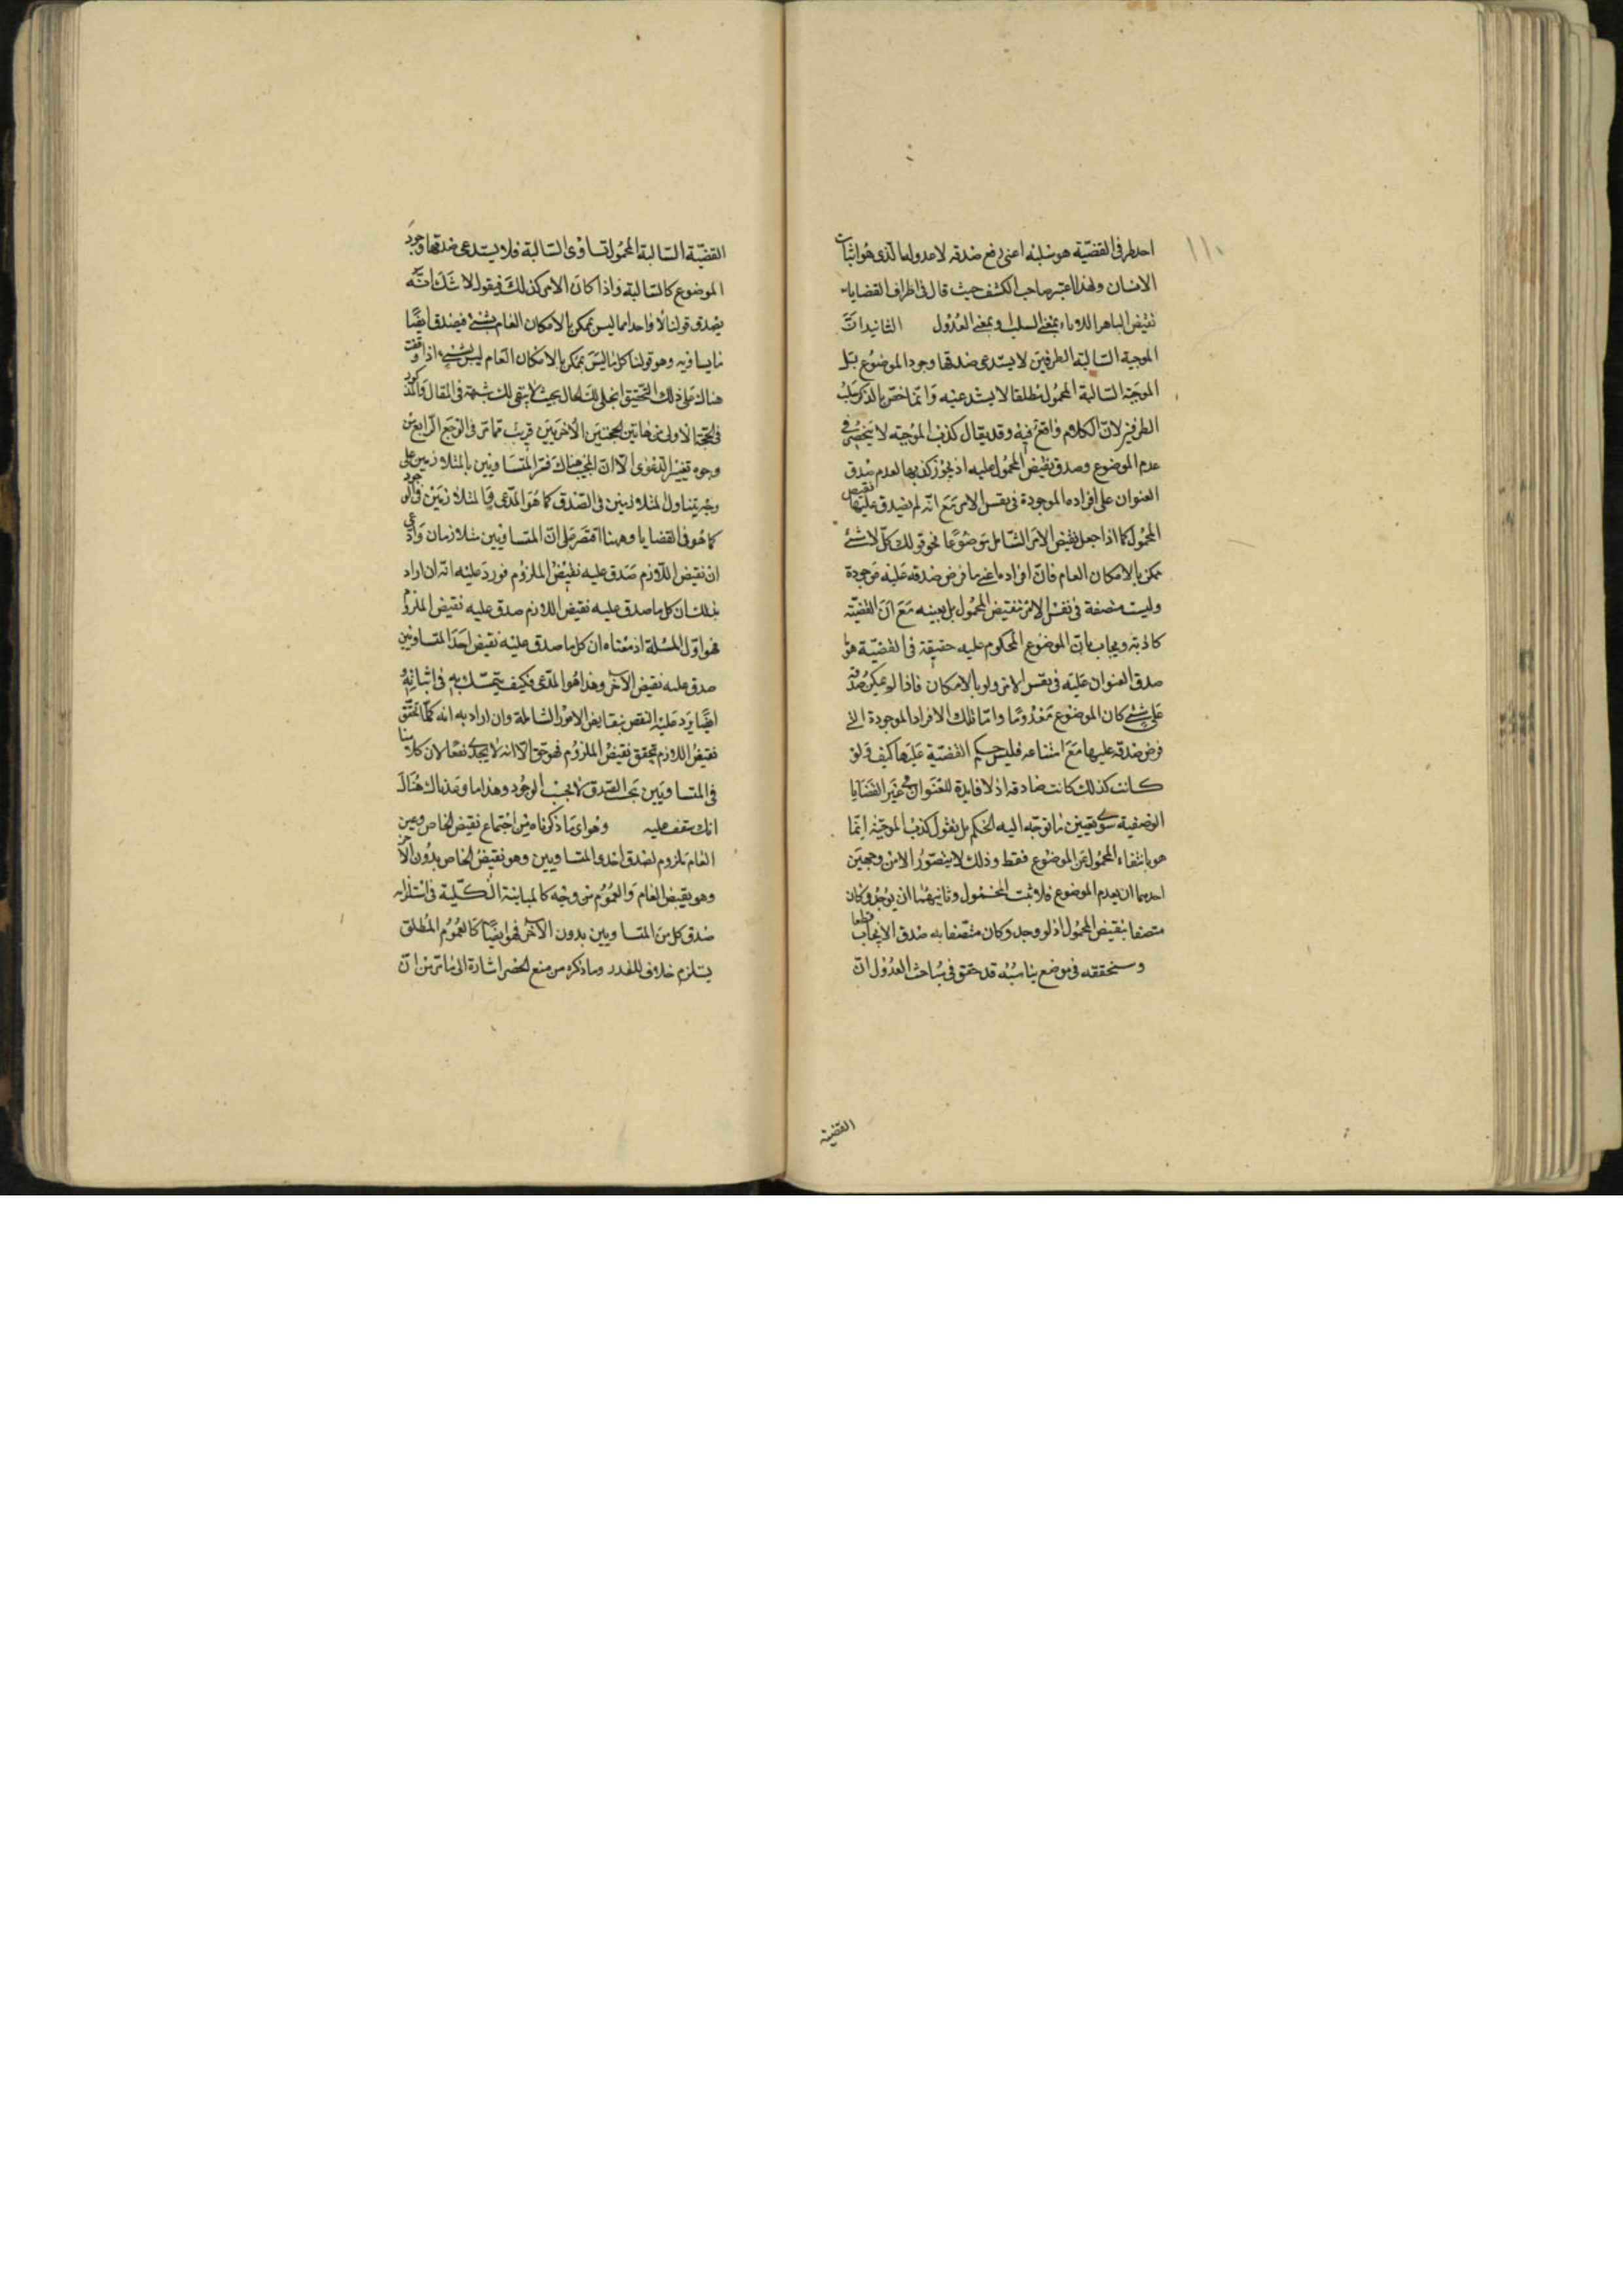 ١١٠
احد طرفى القضيّة هو سلبه اعنى رفع صدقه لا عدوله الذى هو اثبات
الانسان ولهذا اعتبر صاحب الكشف حيث قال فى اطراف القضايا
نقيض الباهر اللادوام بمعنى السلب وبمعنى العدول الثانية ان
الموجبة السالبة الطرفين لا يستدعى صدقها وجود الموضوع بل
الموجبة السالبة المحمول مطلقا لا يستدعيه وانما خص بالذكر سلب
الطرفين لان الكلام واقع فيه وقد يقال كذب الموجبة لا ينحصر فى
عدم الموضوع وصدق نقيض المحمول عليه اذ يجوز كذبها لعدم صدق
العنوان على افراده الموجودة فى نفس الامر مع انه لم يصدق عليها نقيض
المحمول كما اذا جعل نقيض الامر الشامل موضوعا نحو قولك كل لا شئ
ممكن بالامكان العام فان افراده اعنى ما فرض صدقه عليه موجودة
وليست متصفة فى نفس الامر بنقيض المحمول بل بعينه مع ان القضيّة
كاذبة ويجاب بان الموضوع المحكوم عليه حقيقة فى القضيّة هو ما
صدق العنوان عليه فى نفس الامر ولو بالامكان فاذا لم يمكن صدقه
على شئ كان الموضوع معدوما واما تلك الافراد الموجودة التى
فرض صدقه عليها مع امتناعه فليس حكم القضيّة عليها كيف ولو
كانت كذلك كانت صادقة اذ لا فايدة للعنوان فى غير القضايا
الوصفية سوى تعيين ما توجه اليه الحكم بل نقول كذب الموجبة انما
هو بانتفاء المحمول عن الموضوع فقط وذلك لا يتصور الا من وجهين
احدهما ان يعدم الموضوع فلا يثبت المحمول وثانيهما ان يوجد وكان
متصفا بنقيض المحمول اذ لو وجد وكان متصفا به صدق الايجاب قطعا
وسنحققه فى موضع يناسبه قد حقق فى مباحث العدول ان
القضية
القضيّة السالبة المحمول تساوى السالبة فلا يستدعى صدقها وجود
الموضوع كالسالبة واذا كان الامر كذلك فيقول لا شك انّه
يصدق قولنا لا واحد مما ليس بممكن بالامكان العام بشئ فيصدق ايضا
ما يساويه وهو قولنا كل ما ليس بممكن بالامكان العام ليس بشئ اذا وقفت
هناك على ذلك التحقيق انجلى لك الحال بحيث لا يبقى لك شبهة فى المقال والمذكور
فى الحجة الاولى من هاتين الحجتين الاخريين قريب مما مر فى الوجه الرابع من
وجوه تغيير الدعوى الا ان المجيب هناك فسر المتساويين بالمتلازمين على
وجه يتناول المتلازمين فى الصدق كما هو المدعى والمتلازمين فى الوجود
كما هو فى القضايا وههنا اقتصر على ان المتساويين متلازمان وادعى
ان نقيض اللازم صدق عليه نقيض الملزوم فورد عليه انه ان اراد
بذلك ان كل ما صدق عليه نقيض اللازم صدق عليه نقيض الملزوم
فهو اول المسئلة اذ معناه ان كل ما صدق عليه نقيض احد المتساويين
صدق عليه نقيض الآخر وهذا هو المدعى فكيف يتمسك به فى اثباته
ايضا يرد عليه النقض بنقايض الامور الشاملة وان اراد به انه كلما تحقق
نقيض اللازم تحقق نقيض الملزوم فهو حق الا انه لا يجدى نفعا لان كلامنا
فى المتساويين بحسب الصدق لا بحسب الوجود وهذا ما وعدناك هناك
انك ستقف عليه وهو اى ما ذكرناه من اجتماع نقيض الخاص وعين
العام ملزوم لصدق احدى المتساويين وهو نقيض الخاص بدون الآخر
وهو نقيض العام والعموم من وجه كالمباينة الكلية فى استلزامه
صدق كل من المتساويين بدون الآخر فهو ايضا كالعموم المطلق
يستلزم خلاف المقدر وما ذكره من منع الحصر اشارة الى ما مر من ان